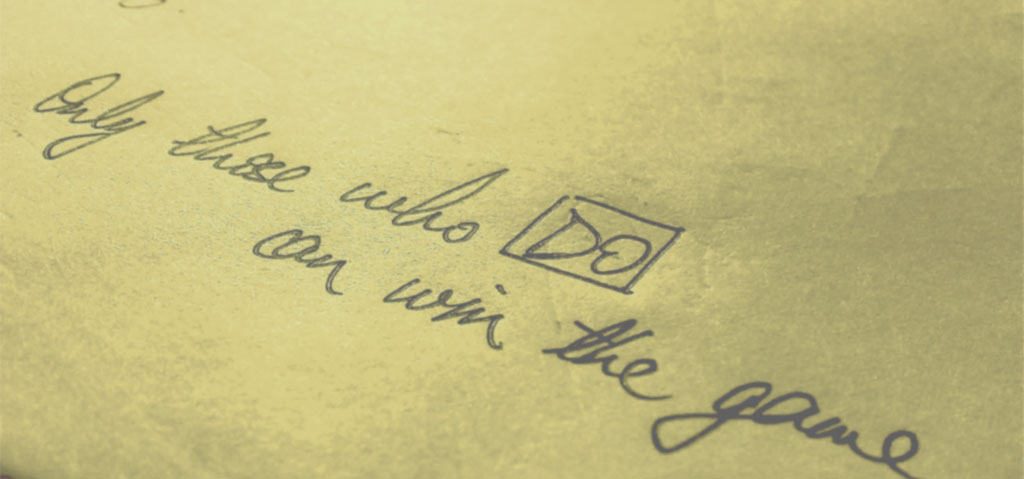 Only those who DO
can win the game